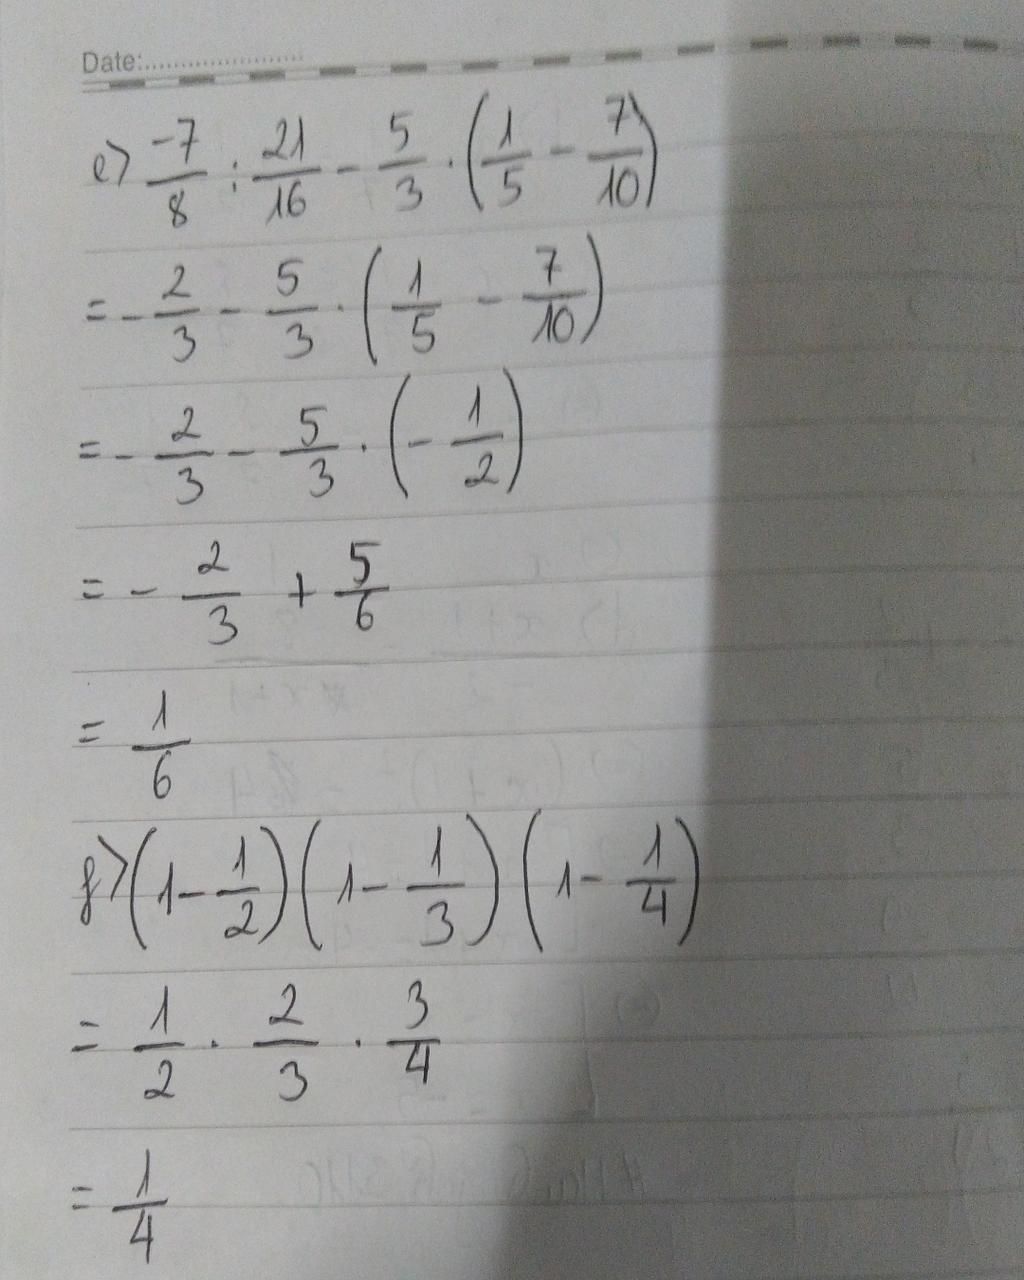 Date:.....................
e) -7/8 : 21/16 - 5/3 . (1/5 - 7/10)
= - 2/3 - 5/3 . (1/5 - 7/10)
= - 2/3 - 5/3 . (- 1/2)
= - 2/3 + 5/6
= 1/6
f) (1 - 1/2) (1 - 1/3) (1 - 1/4)
= 1/2 . 2/3 . 3/4
= 1/4